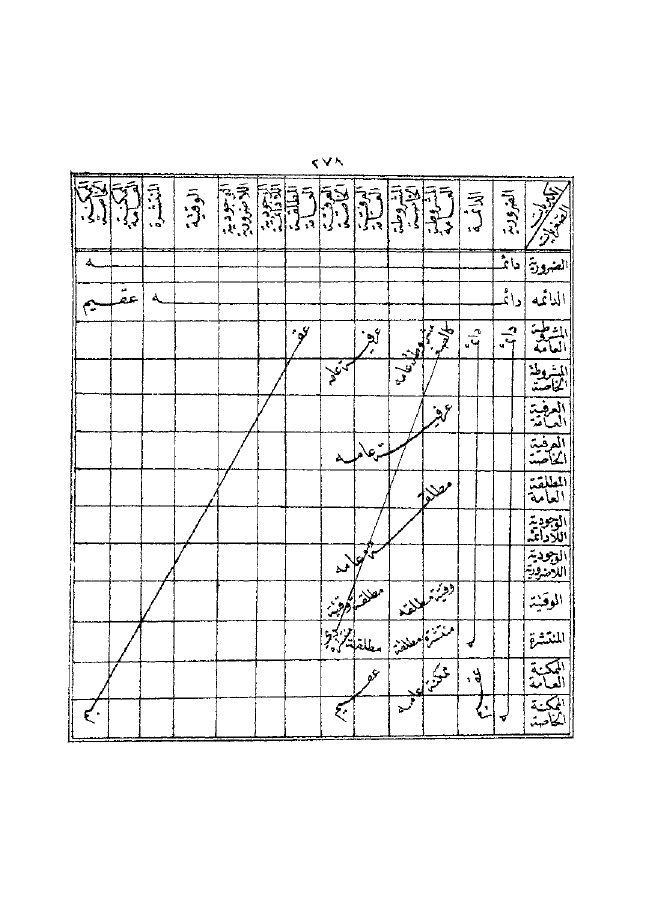 ٢٧٨
الكبريات
الصغريات
الضرورية
الدائمة
المشروطة العامة
المشروطة الخاصة
العرفية العامة
العرفية الخاصة
المطلقة العامة
الوجودية اللادائمة
الوجودية اللاضرورية
الوقتية
المنتشرة
الممكنة العامة
الممكنة الخاصة
الضرورية دائمـــه
الدائمه دائمـــه عقيم
المشروطة العامه دائمـ دائمـ مشروطة عامه عرفيـــة عامه عقـ
المشروطة الخاصة
العرفية العامة عرفيـــة عامه
العرفية الخاصة
المطلقة العامة مطلقـــة عامه
الوجودية اللادائمة
الوجودية اللاضرورية
الوقتية وقتية مطلقه مطلقة وقتية
المنتشرة ـه منتشرة مطلقة مطلقة منتشرة
الممكنة العامة عقـ ممكنة عامه عقـــيم
الممكنة الخاصة ـه ـيم ـيم